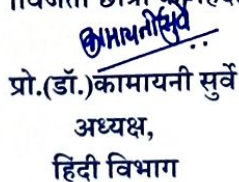 कामायनी सुर्वे
प्रो.(डॉ.)कामायनी सुर्वे
अध्यक्ष,
हिंदी विभाग